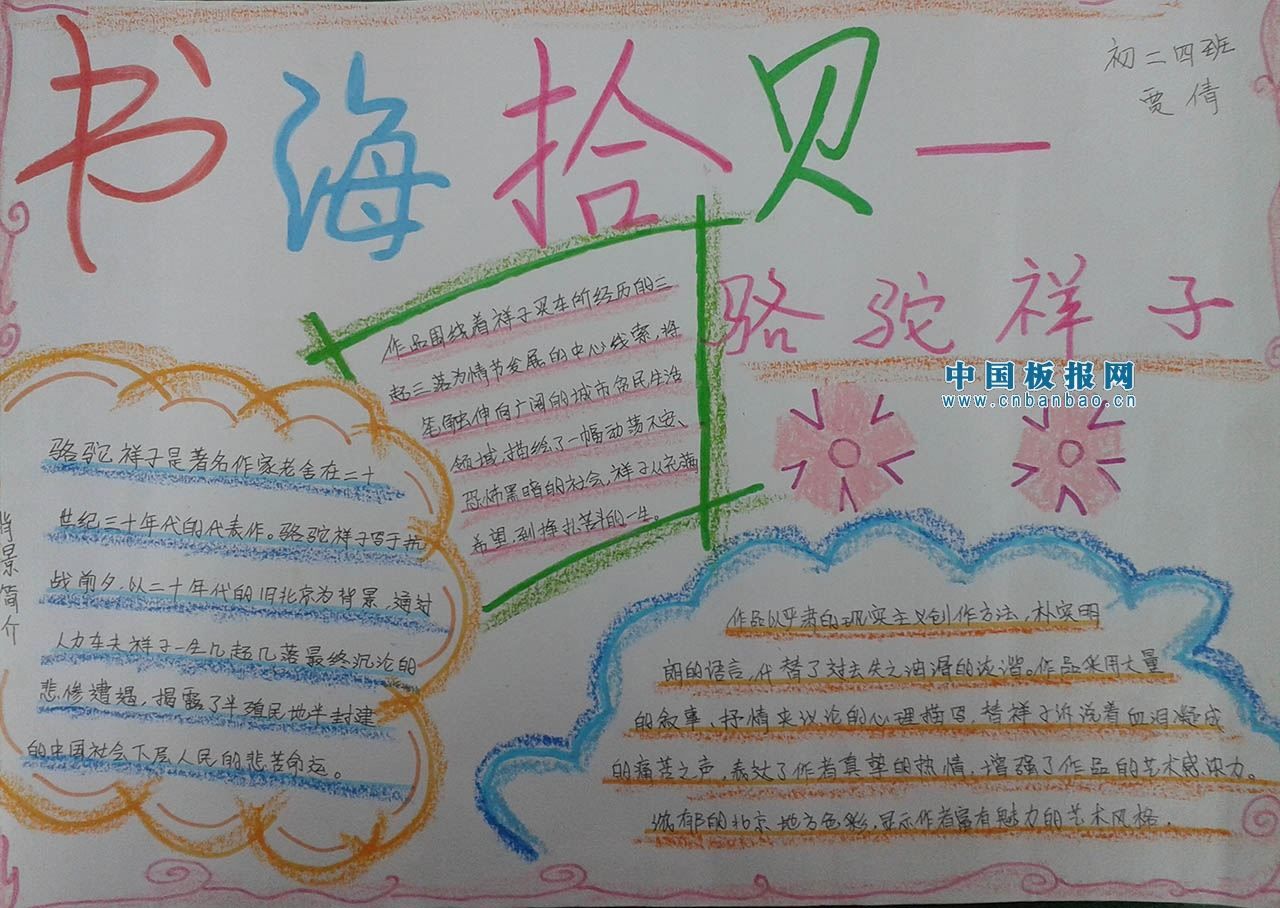 书海拾贝—
初二四班
贾倩
骆驼祥子
中国板报网
www.cnbanbao.cn
作品围绕着祥子买车所经历的三
起三落为情节发展的中心线索,将
笔触伸向广阔的城市贫民生活
领域,描绘了一幅动荡不安、
恐怖黑暗的社会,祥子从充满
希望,到挣扎苦斗的一生。
背景简介
骆驼祥子是著名作家老舍在二十
世纪三十年代的代表作。骆驼祥子写于抗
战前夕,以二十年代的旧北京为背景,通过
人力车夫祥子一生几起几落最终沉沦的
悲惨遭遇,揭露了半殖民地半封建
的中国社会下层人民的悲苦命运。
作品以严肃的现实主义创作方法,朴实明
朗的语言,代替了过去失之油滑的诙谐。作品采用大量
的叙事、抒情夹议论的心理描写,替祥子诉说着血泪凝成
的痛苦之声,表达了作者真挚的热情,增强了作品的艺术感染力。
浓郁的北京地方色彩,显示作者富有魅力的艺术风格.